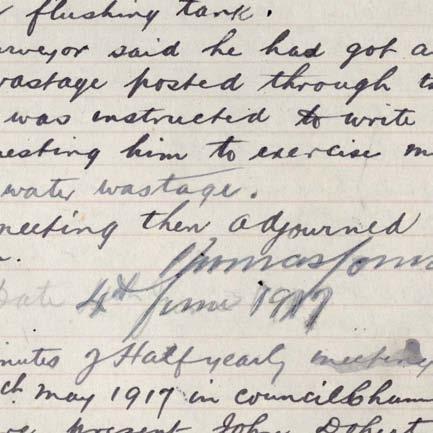 flushing tank.
rveyor said he had got a
wastage posted through t
was instructed to write
uesting him to exercise m
water wastage.
meeting then adjourned
Date 4th June 1917
inutes of Half yearly meeting
ch May 1917 in council Cham
present John Dohert